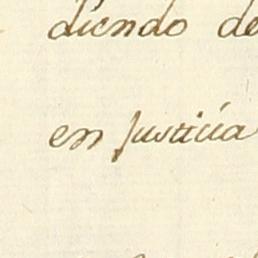 diendo de
en Justicia